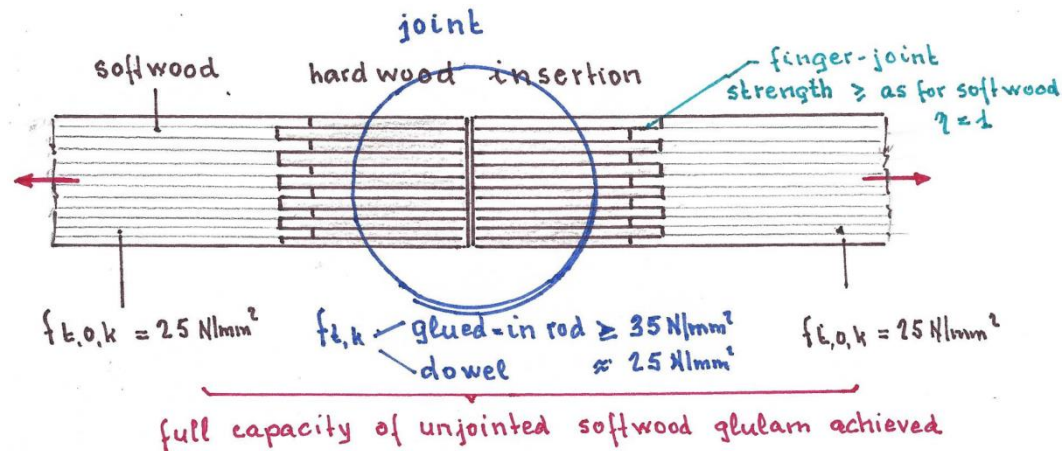 joint
softwood
hardwood insertion
finger-joint
strength ≥ as for softwood
η = 1
f t,0,k = 25 N/mm²
f t,k
glued-in rod ≥ 35 N/mm²
dowel ≈ 25 N/mm²
f t,0,k = 25 N/mm²
full capacity of unjointed softwood glulam achieved